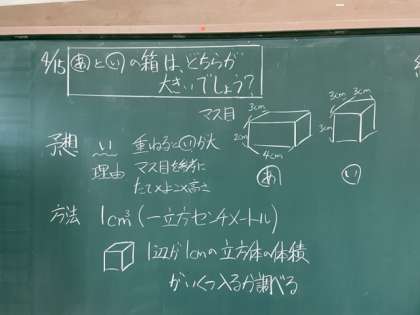 4/15 あといの箱は、どちらが
大きいでしょう?
マス目
3cm
2cm
4cm
あ
3cm 3cm
3cm
い
予想 い 重ねるといが大
理由 マス目を参考に
たて×よこ×高さ
方法 1cm³(一立方センチメートル)
1辺が1cmの立方体の体積
がいくつ入るか調べる